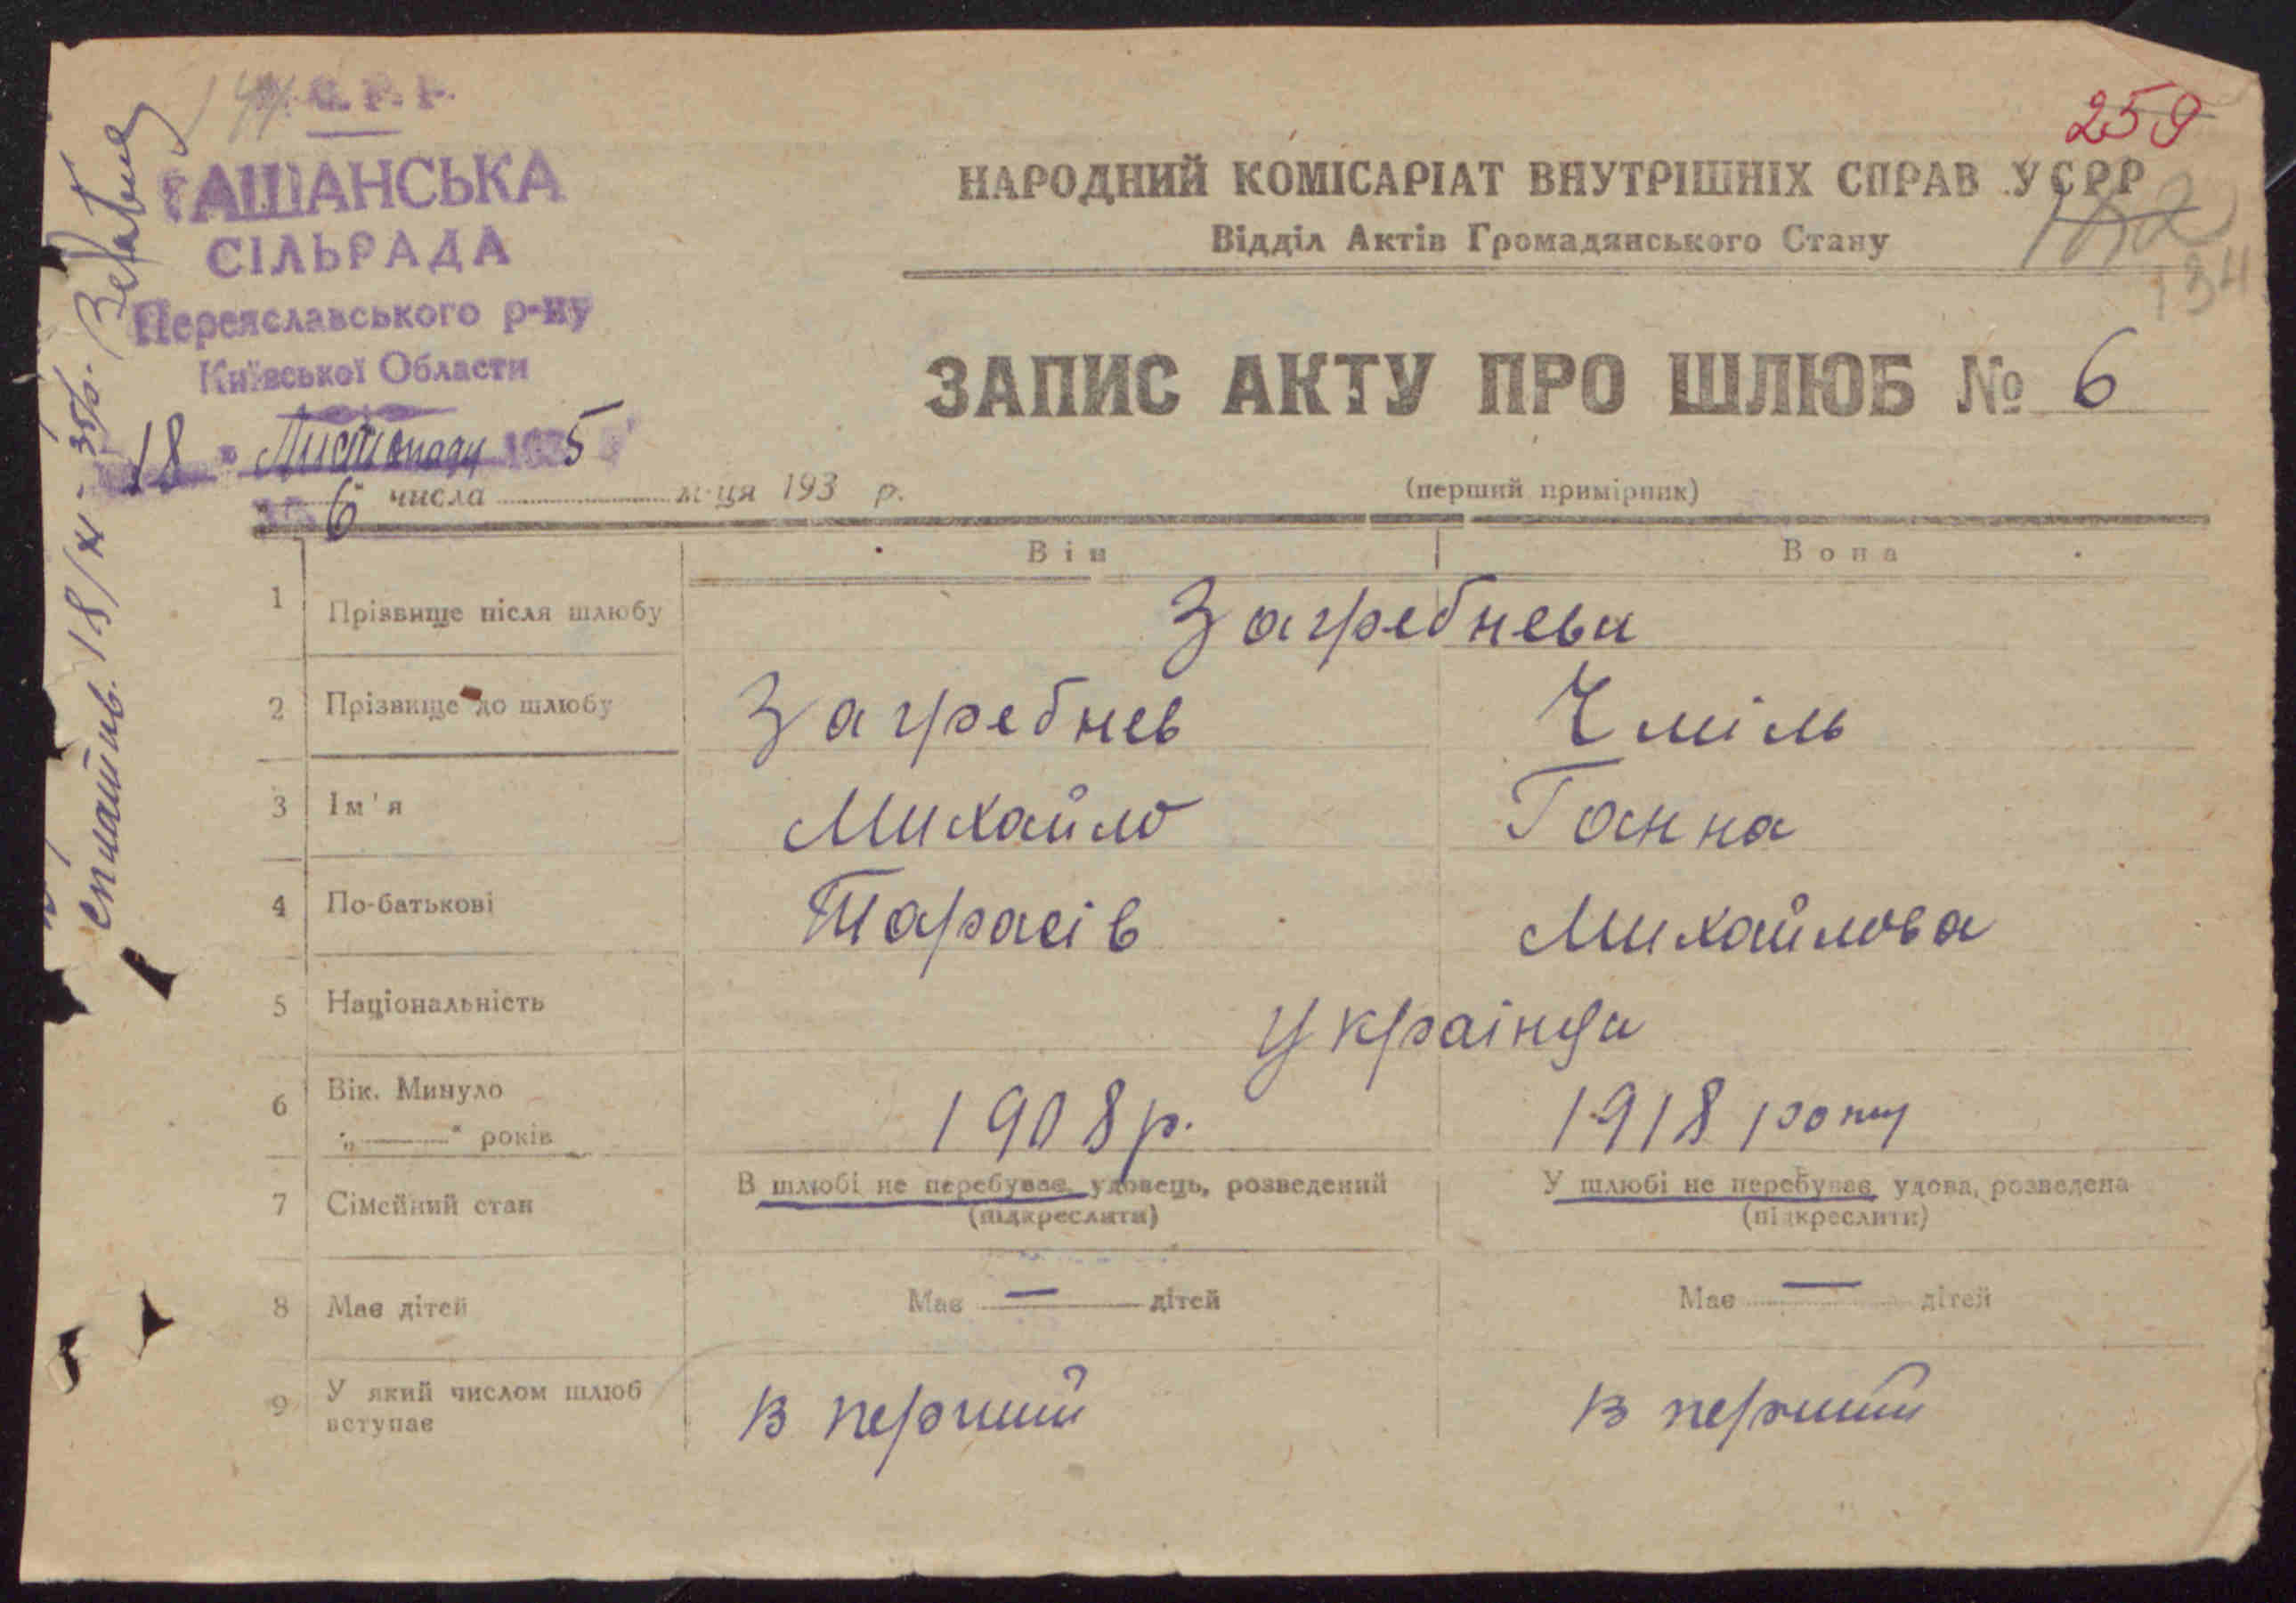 У. С. Р. Р.
ТАШАНСЬКА
СІЛЬРАДА
Переяславського р-ну
Київської Области
18 Листопаду 1935
6
259
НАРОДНИЙ КОМІСАРІАТ ВНУТРІШНІХ СПРАВ УСРР
Відділ Актів Громадянського Стану
134
ЗАПИС АКТУ ПРО ШЛЮБ № 6
числа м-ця 193 р.
(перший примірник)
Він Вона
1 Прізвище після шлюбу Загребневи
2 Прізвище до шлюбу Загребнев Чміль
3 Ім'я Михайло Ганна
4 По-батькові Тарасів Михайлова
5 Національність Українци
6 Вік. Минуло
„ “ років 1908 р. 1918 року
7 Сімейний стан В шлюбі не перебуває, удовець, розведений У шлюбі не перебуває, удова, розведена
(підкреслити) (підкреслити)
8 Має дітей Має — дітей Має — дітей
9 У який числом шлюб
вступає В перший В перший
18/XI - 35 р.